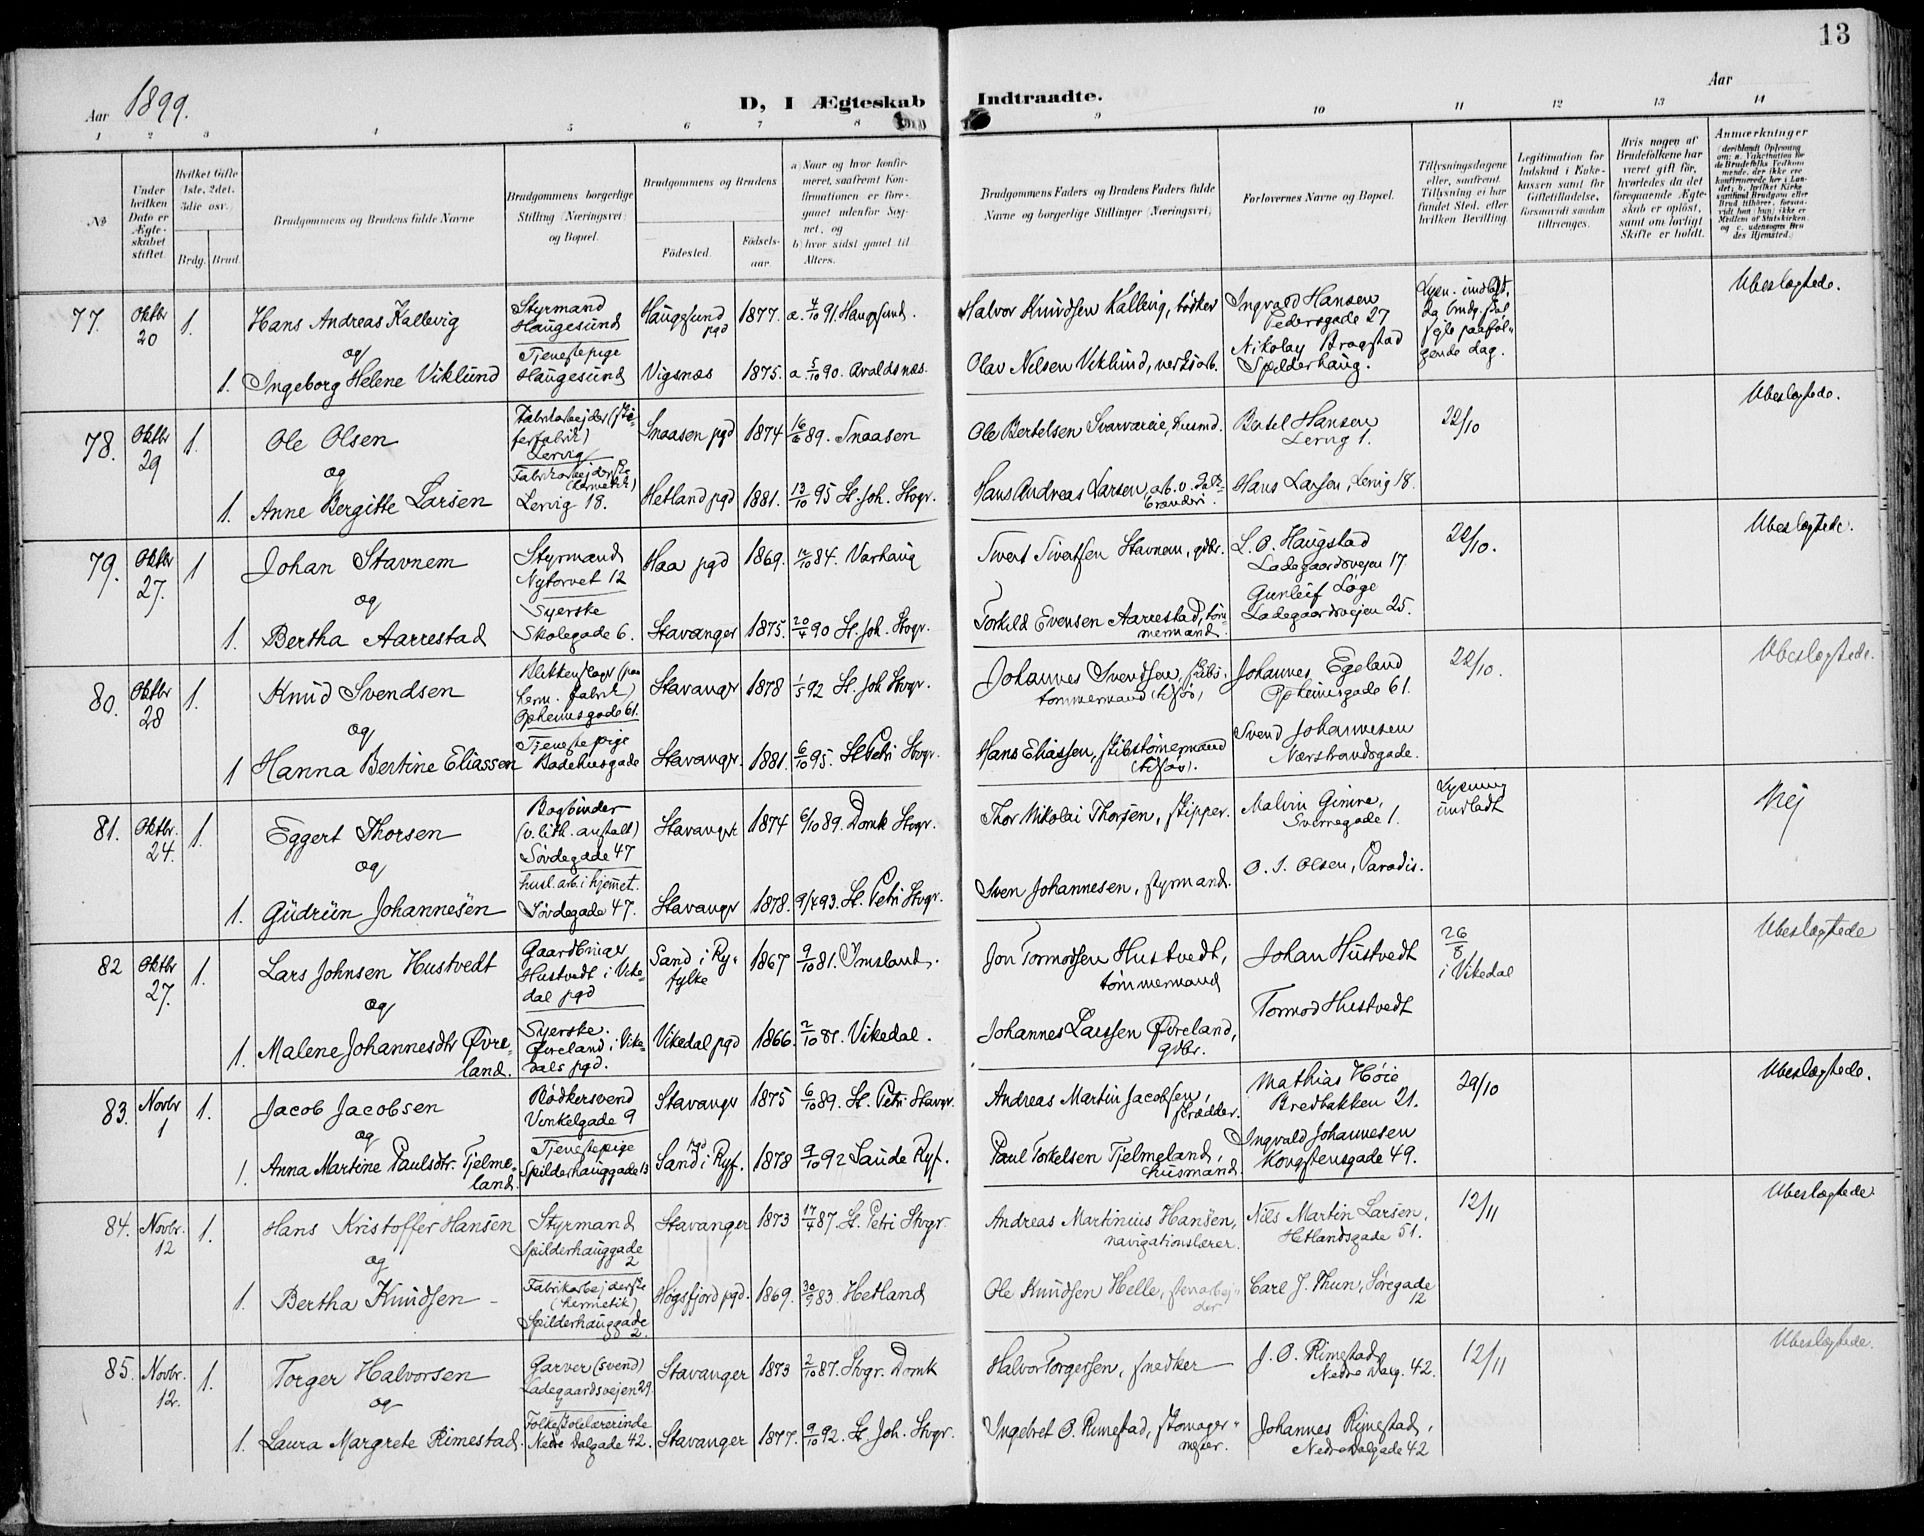 13
Aar 1899.
D, I Ægteskab Indtraadte.
Aar
1 2 3 4 5 6 7 8 9 10 11 12 13 14
No
Under hvilken Dato er Ægteskabet stiftet.
Hvilket Gifte (1ste, 2det, 3die osv.)
Brdg. Brud.
Brudgommens og Brudens fulde Navne
Brudgommens borgerlige Stilling (Næringsvei) og Bopæl.
Brudgommens og Brudens
Fødested. Fødselsaar.
a) Naar og hvor konfirmeret, saafremt Konfirmationen er foregaaet udenfor Sognet, og
b) hvor sidst gaaet til Alters.
Brudgommens Faders og Brudens Faders fulde Navne og borgerlige Stillinger (Næringsvei)
Forlovernes Navne og Bopæl.
Tillysningsdagene eller, saafremt Tillysning ei har fundet Sted, efter hvilken Bevilling.
Legitimation for Indskud i Enkekassen samt for Giftetilladelse, forsaavidt saadan tiltrænges.
Hvis nogen af Brudefolkene har været gift før, hvorledes da det foregaaende Ægteskab er opløst, samt om lovligt Skifte er holdt.
Anmærkninger
77. Oktbr 20 1. Hans Andreas Kallevig Styrmand Haugesund Haugesund pgd 1877. a. 4/10 91. Haugesund. Halvor Knudsen Kallevig, bødker Ingvald Hansen Pedersgade 27 Ubeslægtede.
og
1. Ingeborg Helene Viklund Tjenestepige Haugesund Vigsnæs 1875. a. 5/10 90. Avaldsnæs. Olav Nelsen Viklund, verksarb. Nikolay Bragstad Spilderhaug.
78. Oktbr 29 1. Ole Olsen Lervig Snaasen pgd 1874 16/6 89. Snaasen Ole Bertelsen Svarvareie, husmd. Bertel Hansen Lervig 1. 22/10 Ubeslægtede.
og
1. Anne Bergitte Larsen Lervig 18. Hetland pgd 1881. 13/10 95 St. Joh. Stvgr. Hans Andreas Larsen, Hans Larsen, Lervig 18.
79. Oktbr 27. 1 Johan Stavnem Styrmand Nytorvet 12 Haa pgd 1869. 12/10 84. Varhaug Sivert Sivertsen Stavnem, gdbr. L. O. Haugstad Ladegaardsvejen 17 22/10. Ubeslægtede.
og
1. Bertha Aarrestad Syerske Skolegade 6. Stavanger 1875. 20/4 90 St. Joh. Stvgr. Torkild Evensen Aarrestad, tømmermand. Gunleif Løge Ladegaardsvejen 25.
80. Oktbr 28 1. Knud Svendsen Blikkenslager (paa herm. fabrik) Opheimsgade 61. Stavanger 1878 1/5 92 St. Joh Stvgr. Johannes Svendsen, skibstømmermand (tilsjøs) Johannes Egeland Opheimsgade 61. 22/10. Ubeslægtede.
og
1 Hanna Bertine Eliassen Tjenestepige Badehusgade Stavanger. 1881. 6/10 95. St Petri Stvgr. Hans Eliassen, skibstømmermand (tilsjøs). Svend Johannesen Nærstrandsgade.
81. Oktbr. 24. 1. Eggert Thorsen Bogbinder (v. lith. anstalt) Søvdegade 47 Stavanger 1874 6/10 89. Domk Stvgr. Thor Nikolai Thorsen, skipper. Malvin Gimre, Sverresgade 1. Lysning undladt Nej
og
1. Gudrun Johannesen husl. arb. i hjemmet. Søvdegade 47. Stavanger 1878. 9/4 93. St. Petri Stvgr. Sven Johannesen, styrmand. O. S. Olsen, Paradis.
82 Oktbr 27. 1. Lars Johnsen Hustvedt Gaardbruger Hustvedt i Vikedal pgd Sand i Ryfylke 1867 9/10 81. Imsland. Jon Tormodsen Hustvedt, tømmermand Johan Hustvedt 26/8 i Vikedal Ubeslægtede
og
1. Malene Johannesdtr Øvreland. Syerske. Øvreland i Vikedals pgd. Vikedal pgd 1866. 2/10 81. Vikedal. Johannes Larssen Øvreland, gdbr. Tormod Hustvedt
83. Novbr 1 1. Jacob Jacobsen Bødkersvend Vinkelgade 9 Stavanger 1875 6/10 89. St. Petri Stavgr. Andreas Martin Jacobsen, skrædder. Mathias Høie Bredbakken 21. 29/10 Ubeslægtede.
og
1. Anna Martine Paulsdtr. Tjelmeland. Tjenestepige Spilderhauggade 13 Sand pgd i Ryf. 1878 9/10 92 Saude Ryf. Paul Torkelsen Tjelmeland, husmand. Ingvald Johannesen Kongstensgade 49.
84. Novbr. 12 1. Hans Kristoffer Hansen Styrmand Spilderhauggade 2 Stavanger 1873 17/4 87. St. Petri Stvgr. Andreas Martinius Hansen, navigationslærer. Nils Martin Larsen, Hetlandsgade 51. 12/11 Ubeslægtede
og
1. Bertha Knudsen Fabrikarbejderske (hermetik) Spilderhauggade 2. Høgsfjord pgd. 1869. 30/9 83. Hetland Ole Knudsen Helle, stenarbejder Carl J. Thun, Søregade 12
85. Novbr. 12. 1. Torger Halvorsen Garver (svend) Ladegaardsvejen 29. Stavanger 1873 2/10 87. Stvgr. Domk Halvor Torgersen, snedker J. O. Rimestad Nedre Dalg. 42. 12/11 Ubeslægtede.
og
1. Laura Margrete Rimestad. Folkeskolelærerinde Nedre Dalgade 42. Stavanger 1877. 9/10 92. St. Joh. Stvgr. Ingebret O. Rimestad, skomagermester. Johannes Rimestad, Nedre Dalgade 42